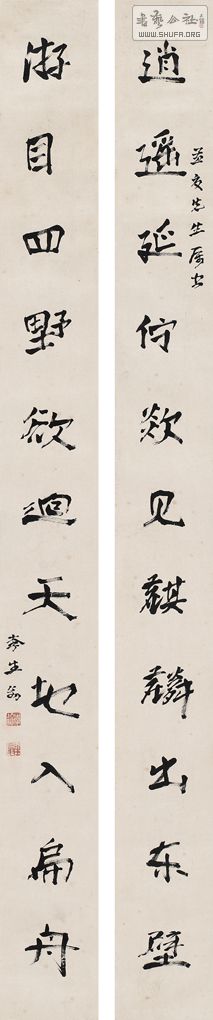 書藝公社
WWW.SHUFA.ORG
逍遥延佇欻见麒麟出东壁
先生属书
游目四野欲迴天地入扁舟
李生翁